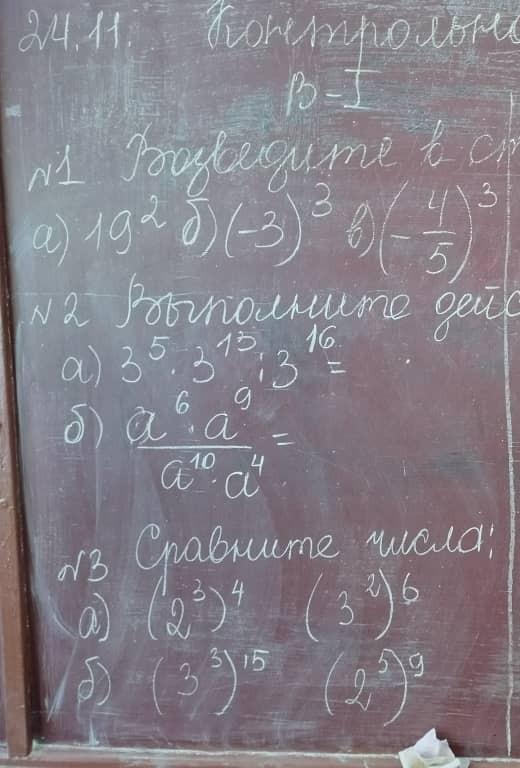 24.11. Контрольно
В-I
№1 Возведите в ст
а) 19² б) (-3)³ в) (-4/5)³
№2 Выполните дейс
а) 3⁵ · 3¹³ : 3¹⁶ =
б) a⁶ · a⁹ / a¹⁰ · a⁴ =
№3 Сравните числа:
а) (2³)⁴ (3²)⁶
б) (3³)¹⁵ (2⁵)⁹